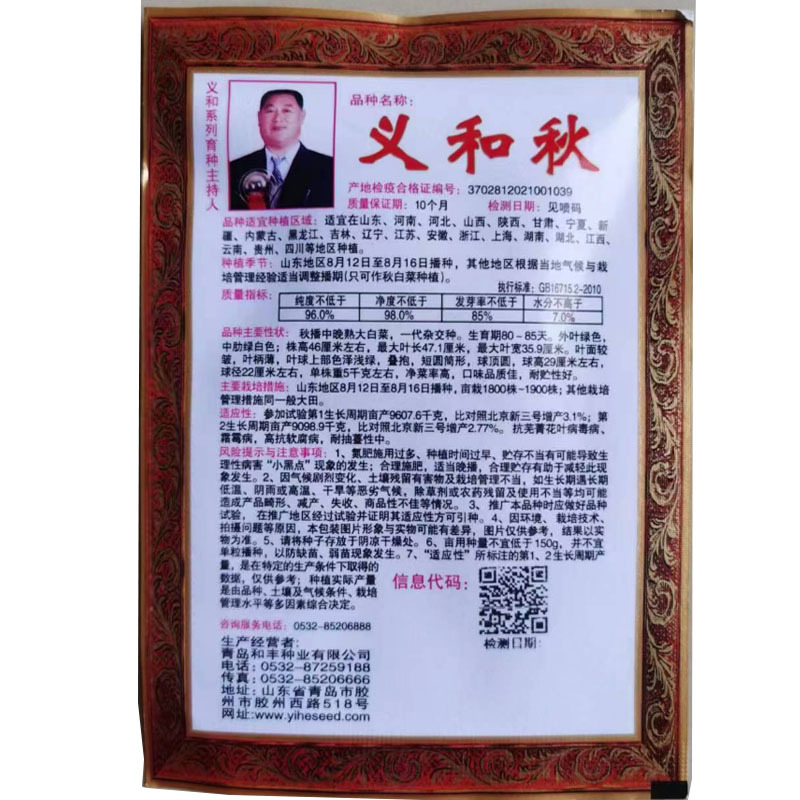 义和系列育种主持人
品种名称：
义和秋
产地检疫合格证编号：3702812021001039
质量保证期：10个月 检测日期：见喷码
品种适宜种植区域：适宜在山东、河南、河北、山西、陕西、甘肃、宁夏、新
疆、内蒙古、黑龙江、吉林、辽宁、江苏、安徽、浙江、上海、湖南、湖北、江西、
云南、贵州、四川等地区种植。
种植季节：山东地区8月12日至8月16日播种，其他地区根据当地气候与栽
培管理经验适当调整播期(只可作秋白菜种植)。
执行标准：GB16715.2-2010
质量指标：
纯度不低于 净度不低于 发芽率不低于 水分不高于
96.0% 98.0% 85% 7.0%
品种主要性状：秋播中晚熟大白菜，一代杂交种。生育期80～85天。外叶绿色，
中肋绿白色；株高46厘米左右，最大叶长47.1厘米，最大叶宽35.9厘米。叶面较
皱，叶柄薄，叶球上部色泽浅绿，叠抱，短圆筒形，球顶圆，球高29厘米左右，
球径22厘米左右，单株重5千克左右，净菜率高，口味品质佳，耐贮性好。
主要栽培措施：山东地区8月12日至8月16日播种，亩栽1800株~1900株；其他栽培
管理措施同一般大田。
适应性：参加试验第1生长周期亩产9607.6千克，比对照北京新三号增产3.1%；第
2生长周期亩产9098.9千克，比对照北京新三号增产2.77%。抗芜菁花叶病毒病、
霜霉病，高抗软腐病，耐抽薹性中。
风险提示与注意事项：1、氮肥施用过多、种植时间过早、贮存不当有可能导致生
理性病害“小黑点”现象的发生；合理施肥，适当晚播，合理贮存有助于减轻此现
象发生。2、因气候剧烈变化、土壤残留有害物及栽培管理不当，如生长期遇长期
低温、阴雨或高温、干旱等恶劣气候，除草剂或农药残留及使用不当等均可能
造成产品畸形、减产、失收、商品性不佳等情况。3、推广本品种时应做好品种
试验，在推广地区经过试验并证明其适应性方可引种。4、因环境、栽培技术、
拍摄问题等原因，本包装图片形象与实物可能有差异，图片仅供参考，结果以实
物为准。5、请将种子存放于阴凉干燥处。6、亩用种量不宜低于150g，并不宜
单粒播种，以防缺苗、弱苗现象发生。7、“适应性”所标注的第1、2生长周期产
量，是在特定的生产条件下取得的
数据，仅供参考；种植实际产量
是由品种、土壤及气候条件、栽培
管理水平等多因素综合决定。
信息代码：
检测日期：
咨询服务电话：0532-85206888
生产经营者：
青岛和丰种业有限公司
电话：0532-87259188
传真：0532-85206666
地址：山东省青岛市胶
州市胶州西路518号
网址:www.yiheseed.com